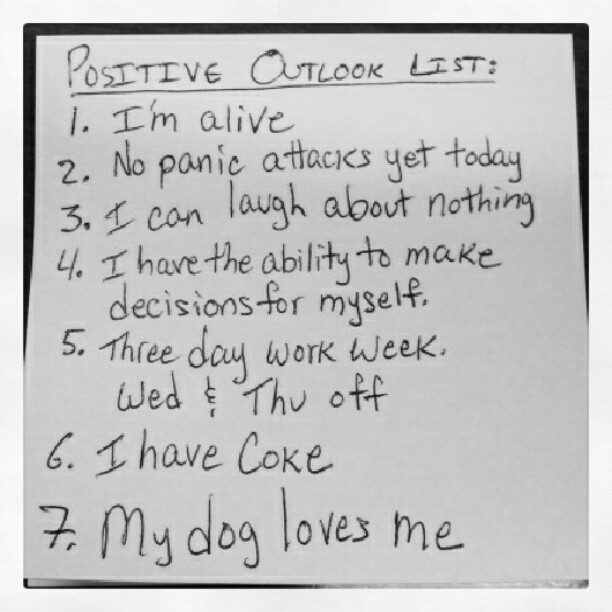 POSITIVE OUTLOOK LIST:
1. I'm alive
2. No panic attacks yet today
3. I can laugh about nothing
4. I have the ability to make
decisions for myself.
5. Three day work week.
Wed & Thu off
6. I have Coke
7. My dog loves me